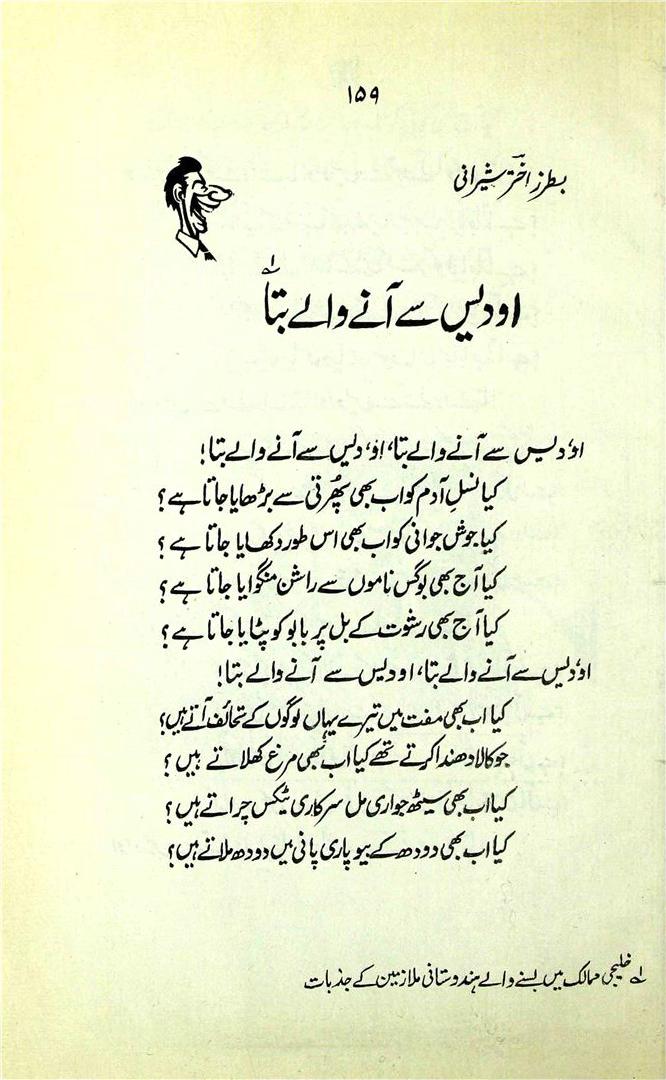 ۱۵۹
بطرز اختر شیرانی
او دیس سے آنے والے بتا ؂۱
او، دیس سے آنے والے بتا، او، دیس سے آنے والے بتا!
کیا نسلِ آدم کو اب بھی پھُرتی سے بڑھایا جاتا ہے؟
کیا جوشِ جوانی کو اب بھی اس طور دکھایا جاتا ہے؟
کیا آج بھی بوگس ناموں سے راشن منگوایا جاتا ہے؟
کیا آج بھی رشوت کے بل پر بابو کو پٹایا جاتا ہے؟
او، دیس سے آنے والے بتا، او دیس سے آنے والے بتا!
کیا اب بھی مفت میں تیرے یہاں لوگوں کے تحائف آتے ہیں؟
جو کالا دھندا کرتے تھے کیا اب بھی مرغ کھلاتے ہیں؟
کیا اب بھی سیٹھ جواری مل سرکاری ٹیکس چراتے ہیں؟
کیا اب بھی دودھ کے بیوپاری پانی میں دودھ ملاتے ہیں؟
؂۱ خلیجی ممالک میں بسنے والے ہندوستانی ملازمین کے جذبات